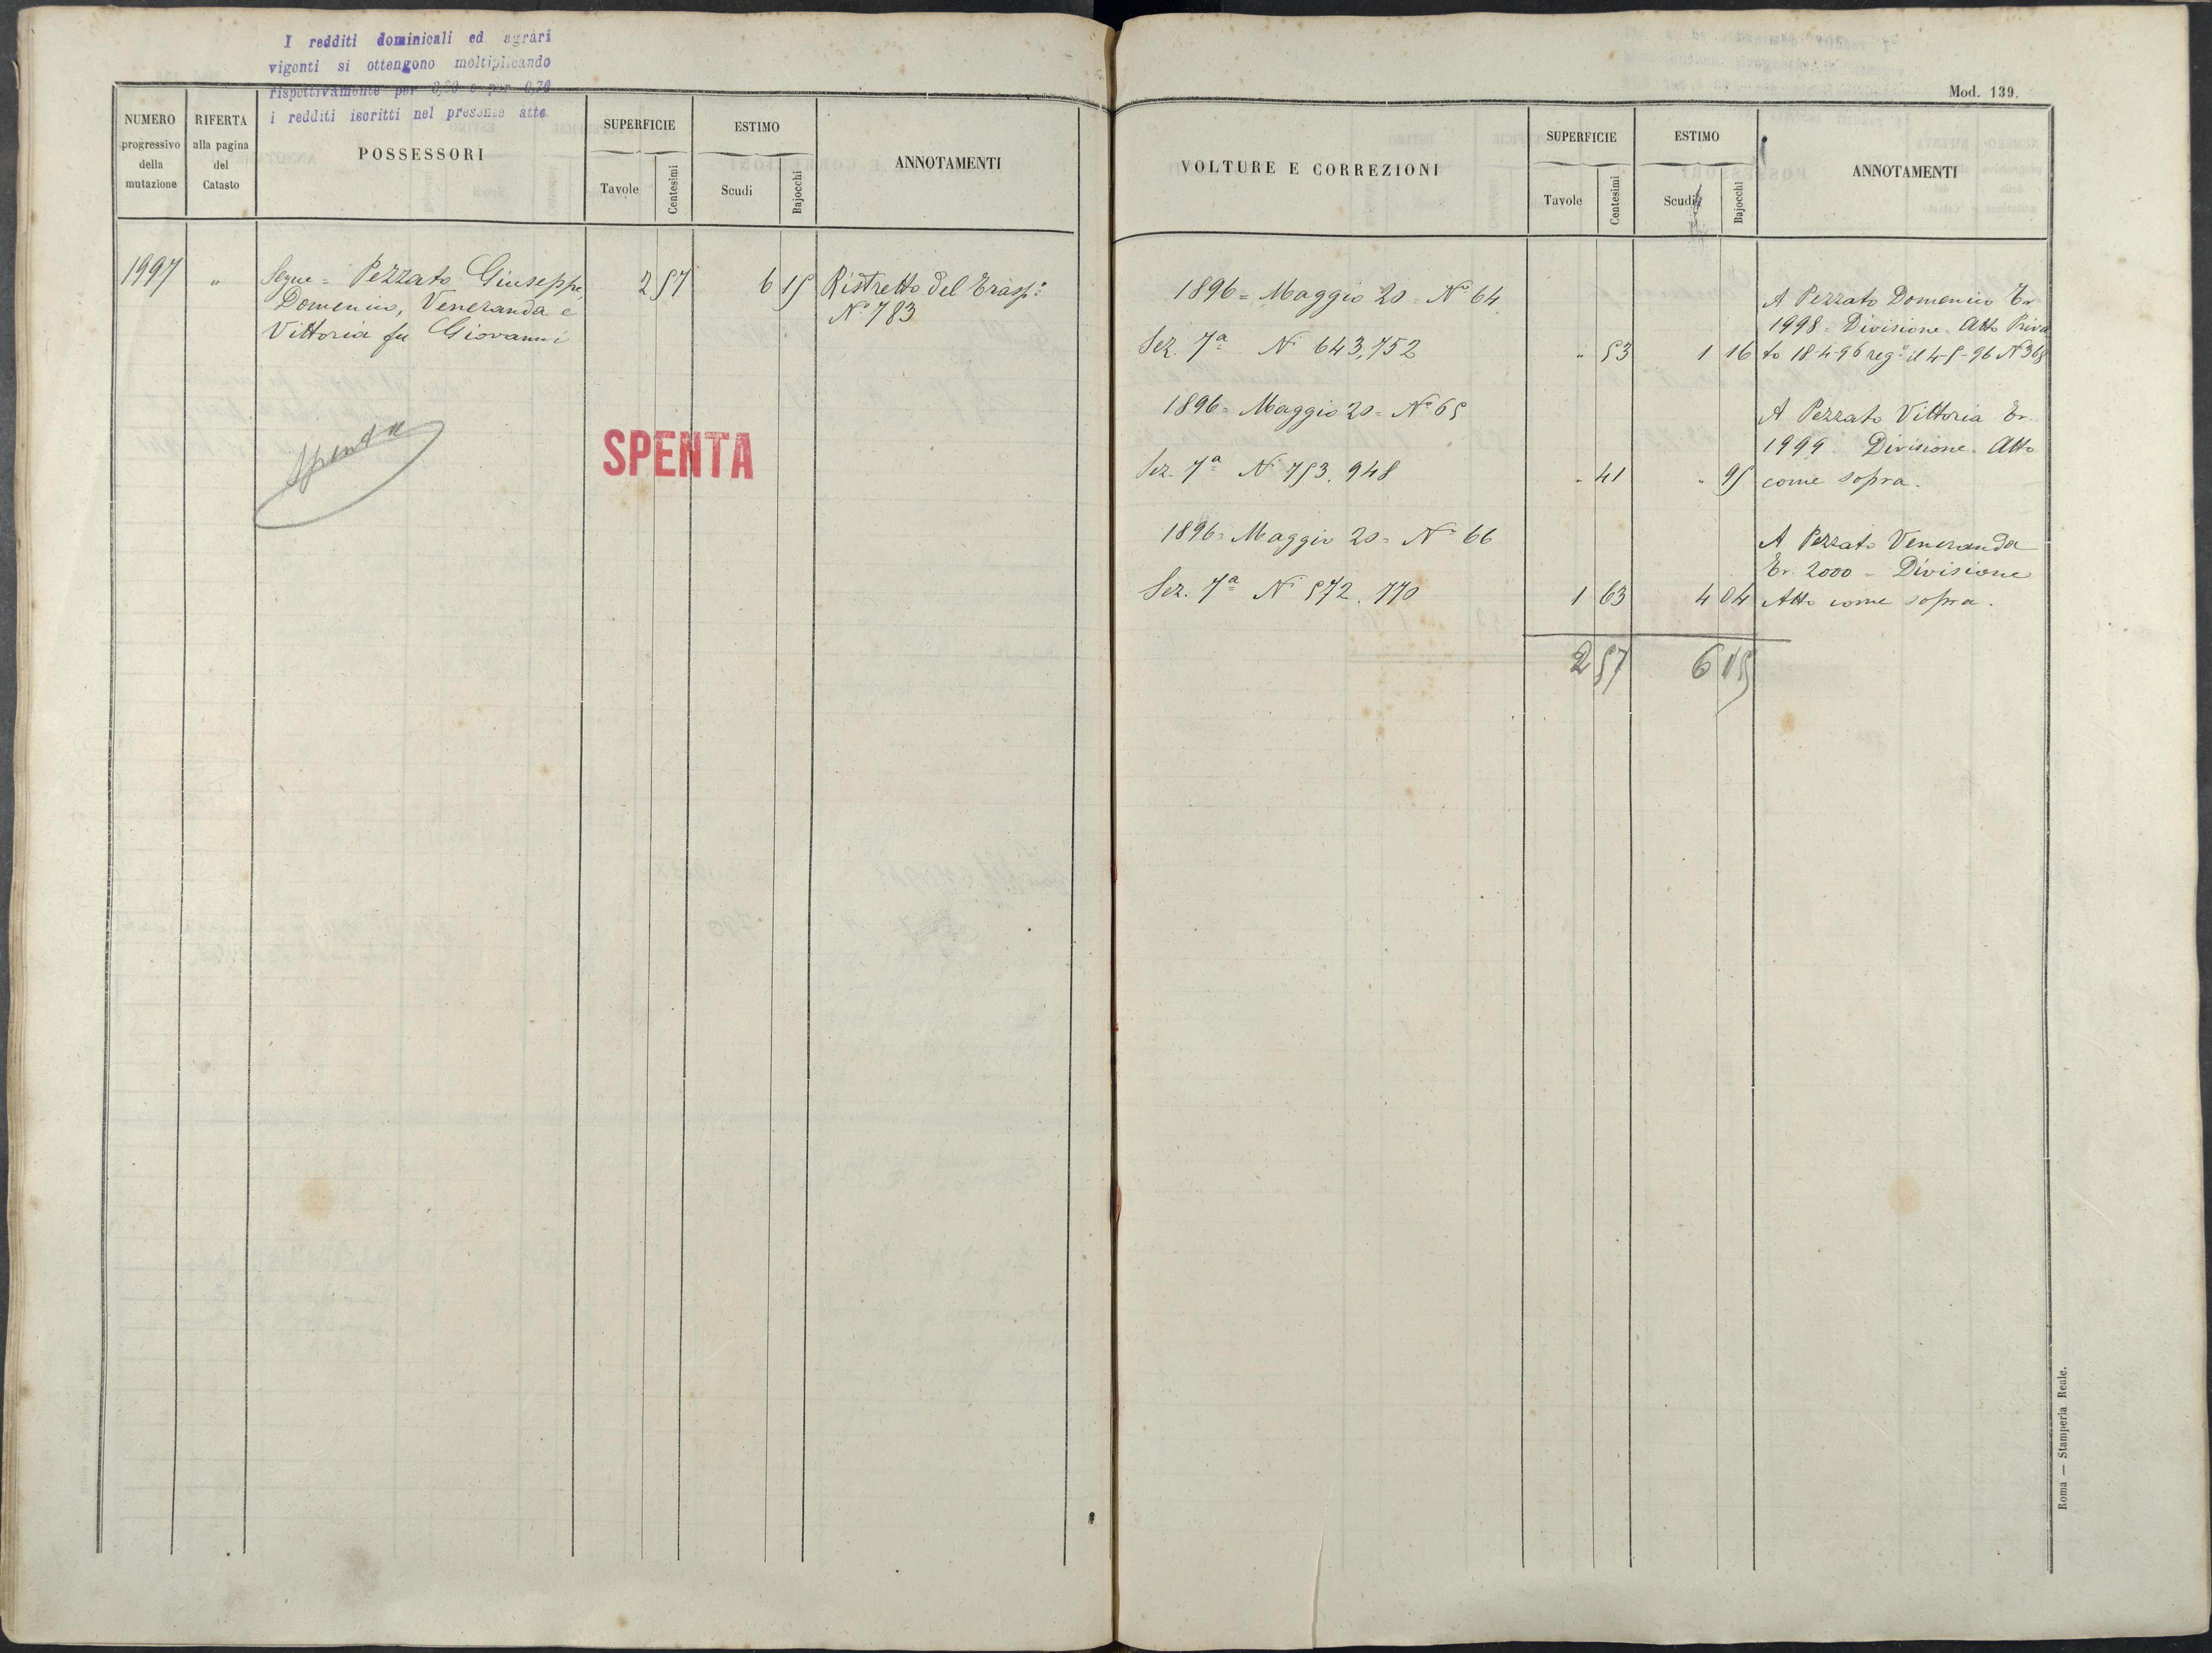 I redditi dominicali ed agrari
vigenti si ottengono moltiplicando
rispettivamente per 0,90 e per 0,70
i redditi iscritti nel presente atto
NUMERO
progressivo
della
mutazione
RIFERTA
alla pagina
del
Catasto
POSSESSORI
SUPERFICIE
Tavole
Centesimi
ESTIMO
Scudi
Bajocchi
ANNOTAMENTI
1997 " Segue = Pezzato Giuseppe, 2 57 6 15 Ristretto del Trasp.o
Domenico, Veneranda e No 783
Vittoria fu Giovanni
Spenta
SPENTA
Mod. 139.
VOLTURE E CORREZIONI
SUPERFICIE
Tavole
Centesimi
ESTIMO
Scudi
Bajocchi
ANNOTAMENTI
1896 = Maggio 20 = No 64 A Pezzato Domenico Tr
1998 = Divisione = Atto Priva
Sez. 7a N 643, 752 " 53 1 16 to 18-4-96 reg.o il 4-5-96 N 368
1896 = Maggio 20 = No 65 A Pezzato Vittoria Tr.
1999. Divisione. Atto
Sez. 7a N 753. 948 " 41 " 95 come sopra.
1896 = Maggio 20 = No 66 A Pezzato Veneranda
Tr. 2000 = Divisione
Sez. 7a N 572. 770 1 63 4 04 Atto come sopra.
2 57 6 15
Roma — Stamperia Reale.